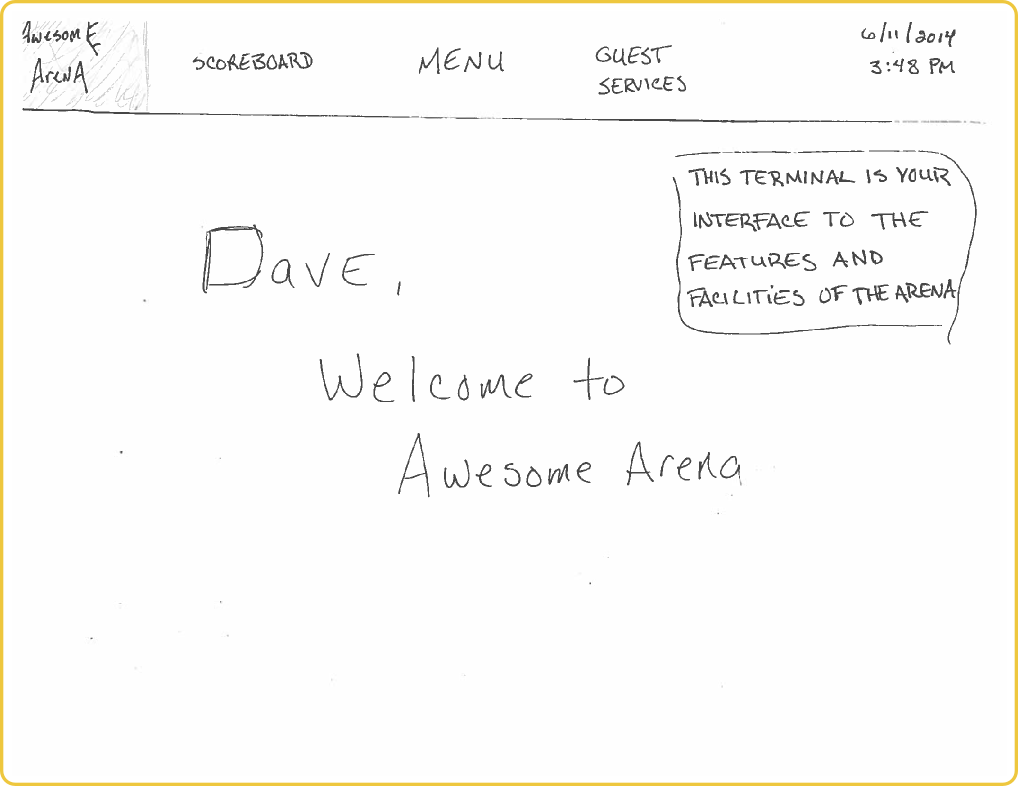 AwesomE
ArenA
SCOREBOARD
MENU
GUEST
SERVICES
6/11/2014
3:48 PM
THIS TERMINAL IS YOUR
INTERFACE TO THE
FEATURES AND
FACILITIES OF THE ARENA
Dave,
Welcome to
Awesome Arena